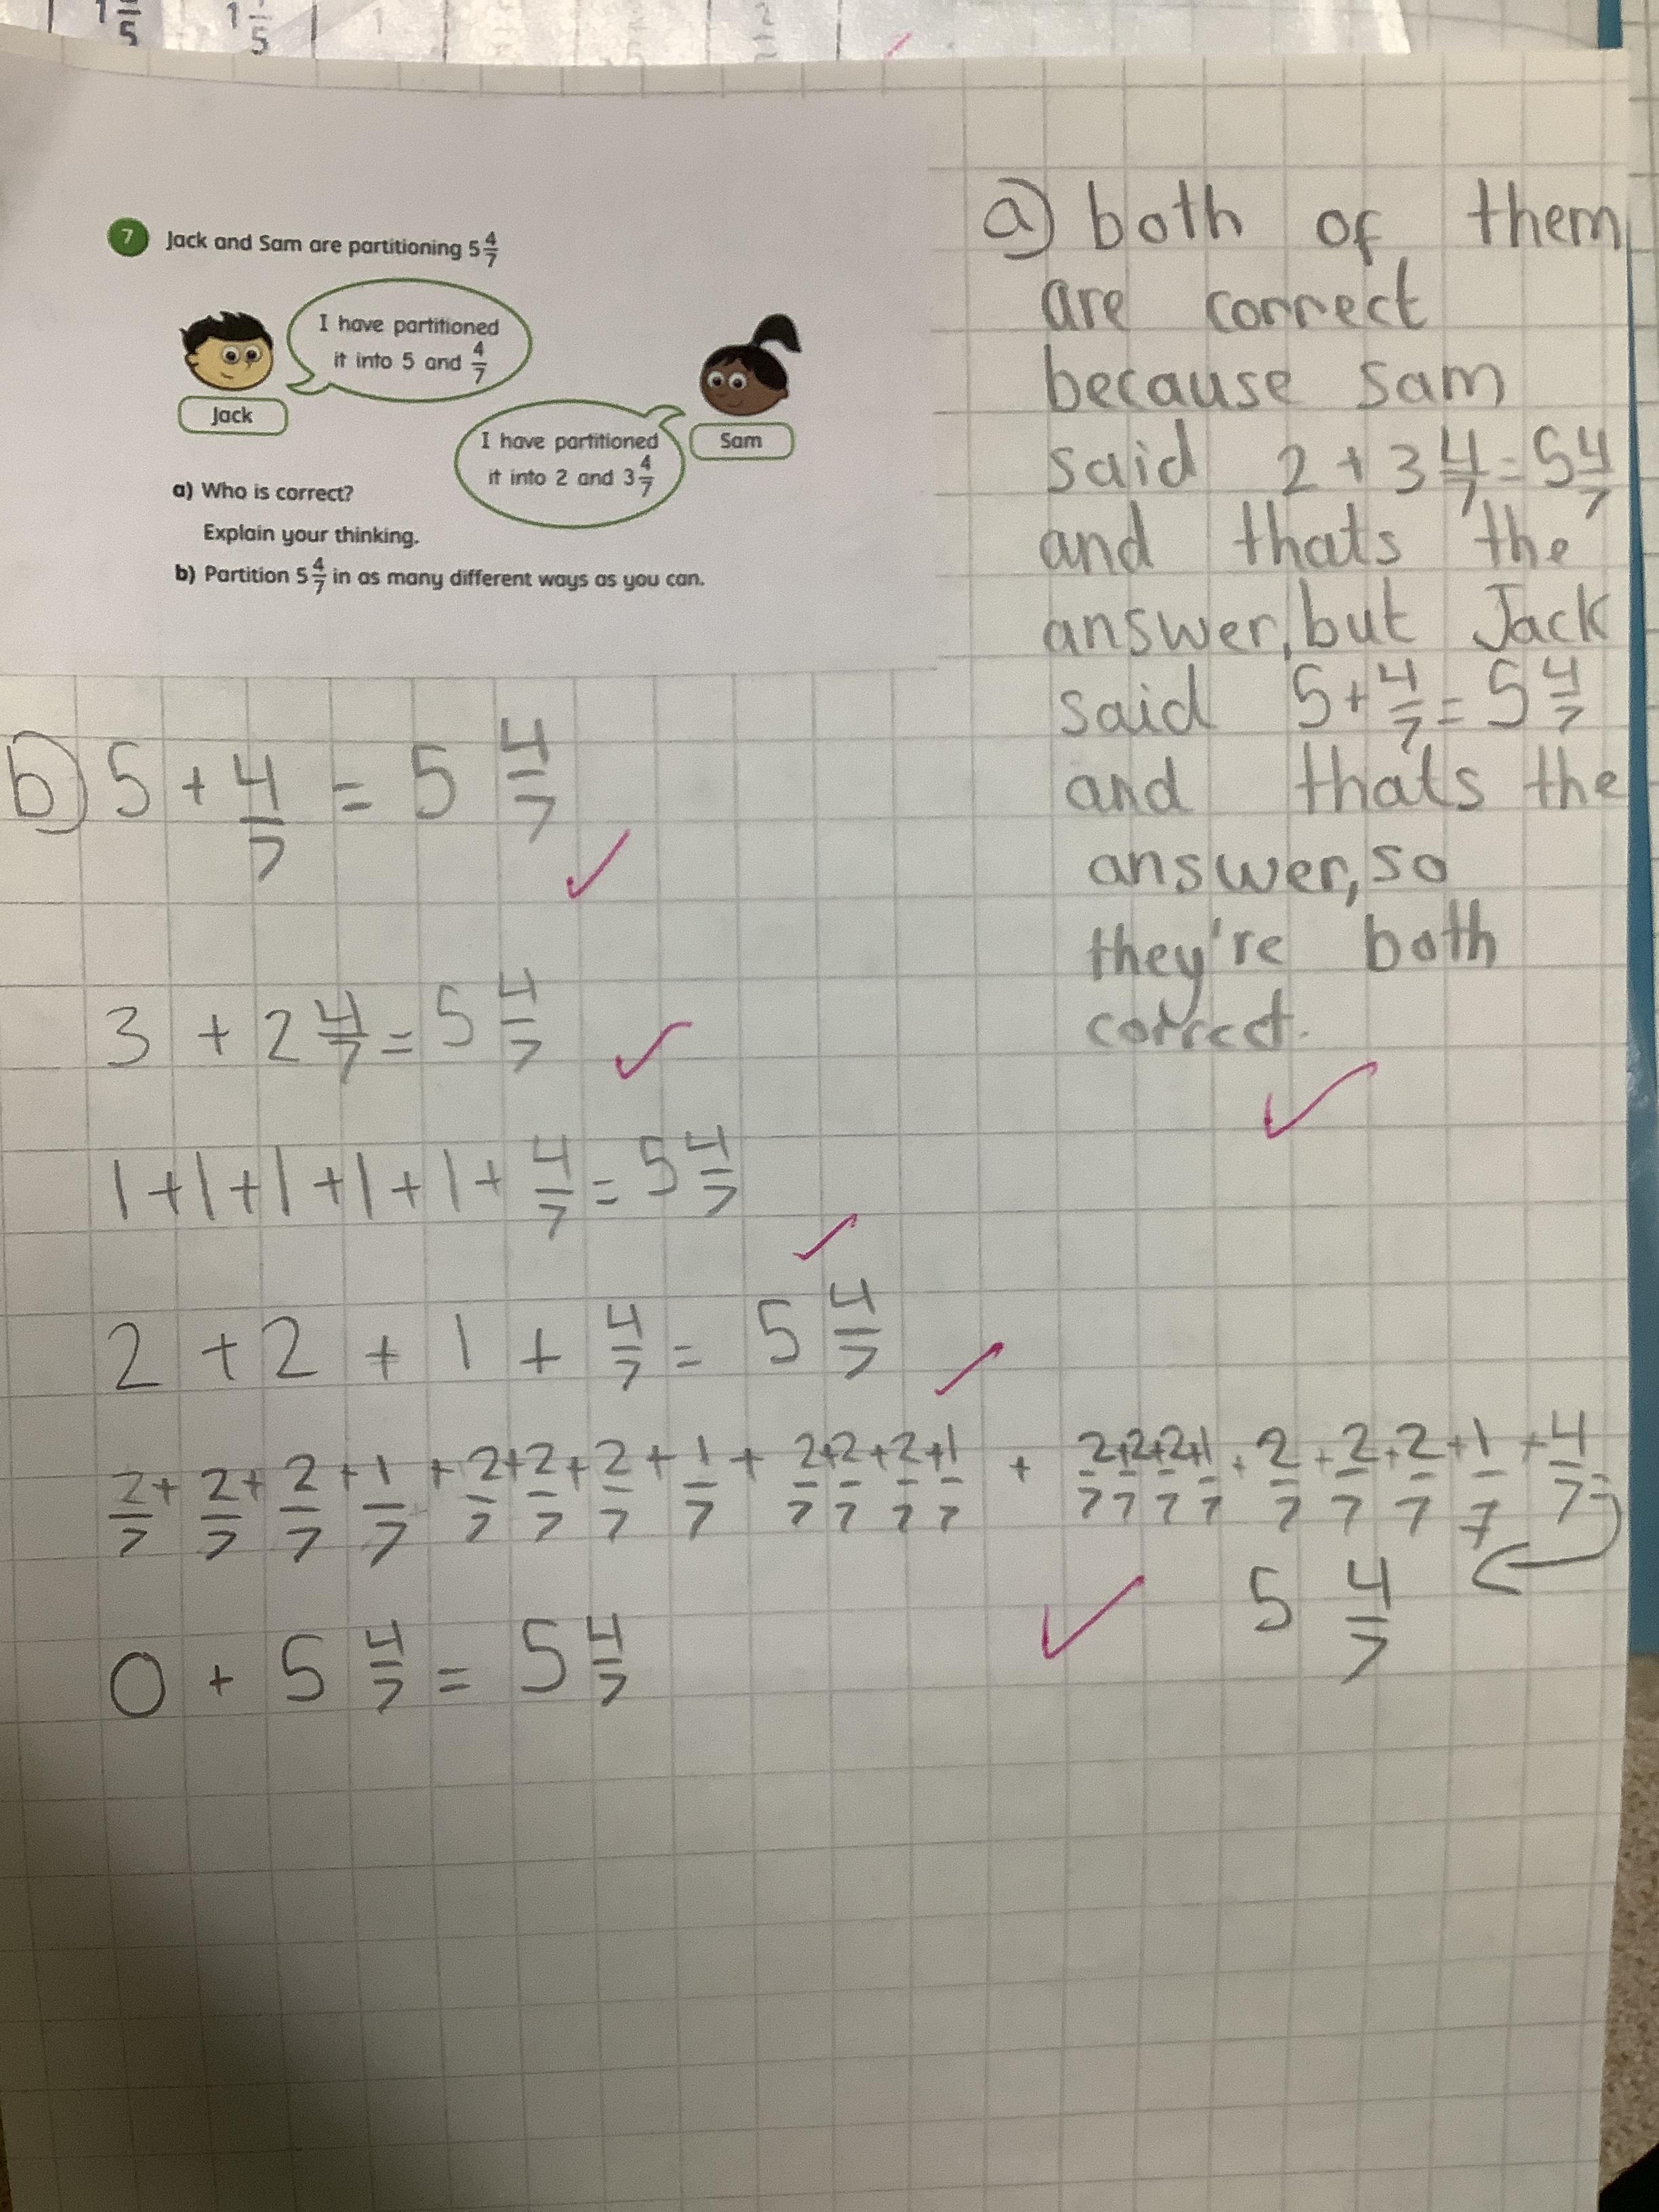 1 1/5 1 1/5
7 Jack and Sam are partitioning 5 4/7
I have partitioned
it into 5 and 4/7
Jack
I have partitioned
it into 2 and 3 4/7
Sam
a) Who is correct?
Explain your thinking.
b) Partition 5 4/7 in as many different ways as you can.
a) both of them
are correct
because Sam
said 2 + 3 4/7 = 5 4/7
and thats the
answer, but Jack
said 5 + 4/7 = 5 4/7
and thats the
answer, so
they're both
correct.
b) 5 + 4/7 = 5 4/7
3 + 2 4/7 = 5 4/7
1 + 1 + 1 + 1 + 1 + 4/7 = 5 4/7
2 + 2 + 1 + 4/7 = 5 4/7
2/7 + 2/7 + 2/7 + 1/7 + 2/7 + 2/7 + 2/7 + 1/7 + 2/7 + 2/7 + 2/7 + 1/7 + 2/7 + 2/7 + 2/7 + 1/7 + 2/7 + 2/7 + 2/7 + 1/7 + 4/7 =
5 4/7
0 + 5 4/7 = 5 4/7